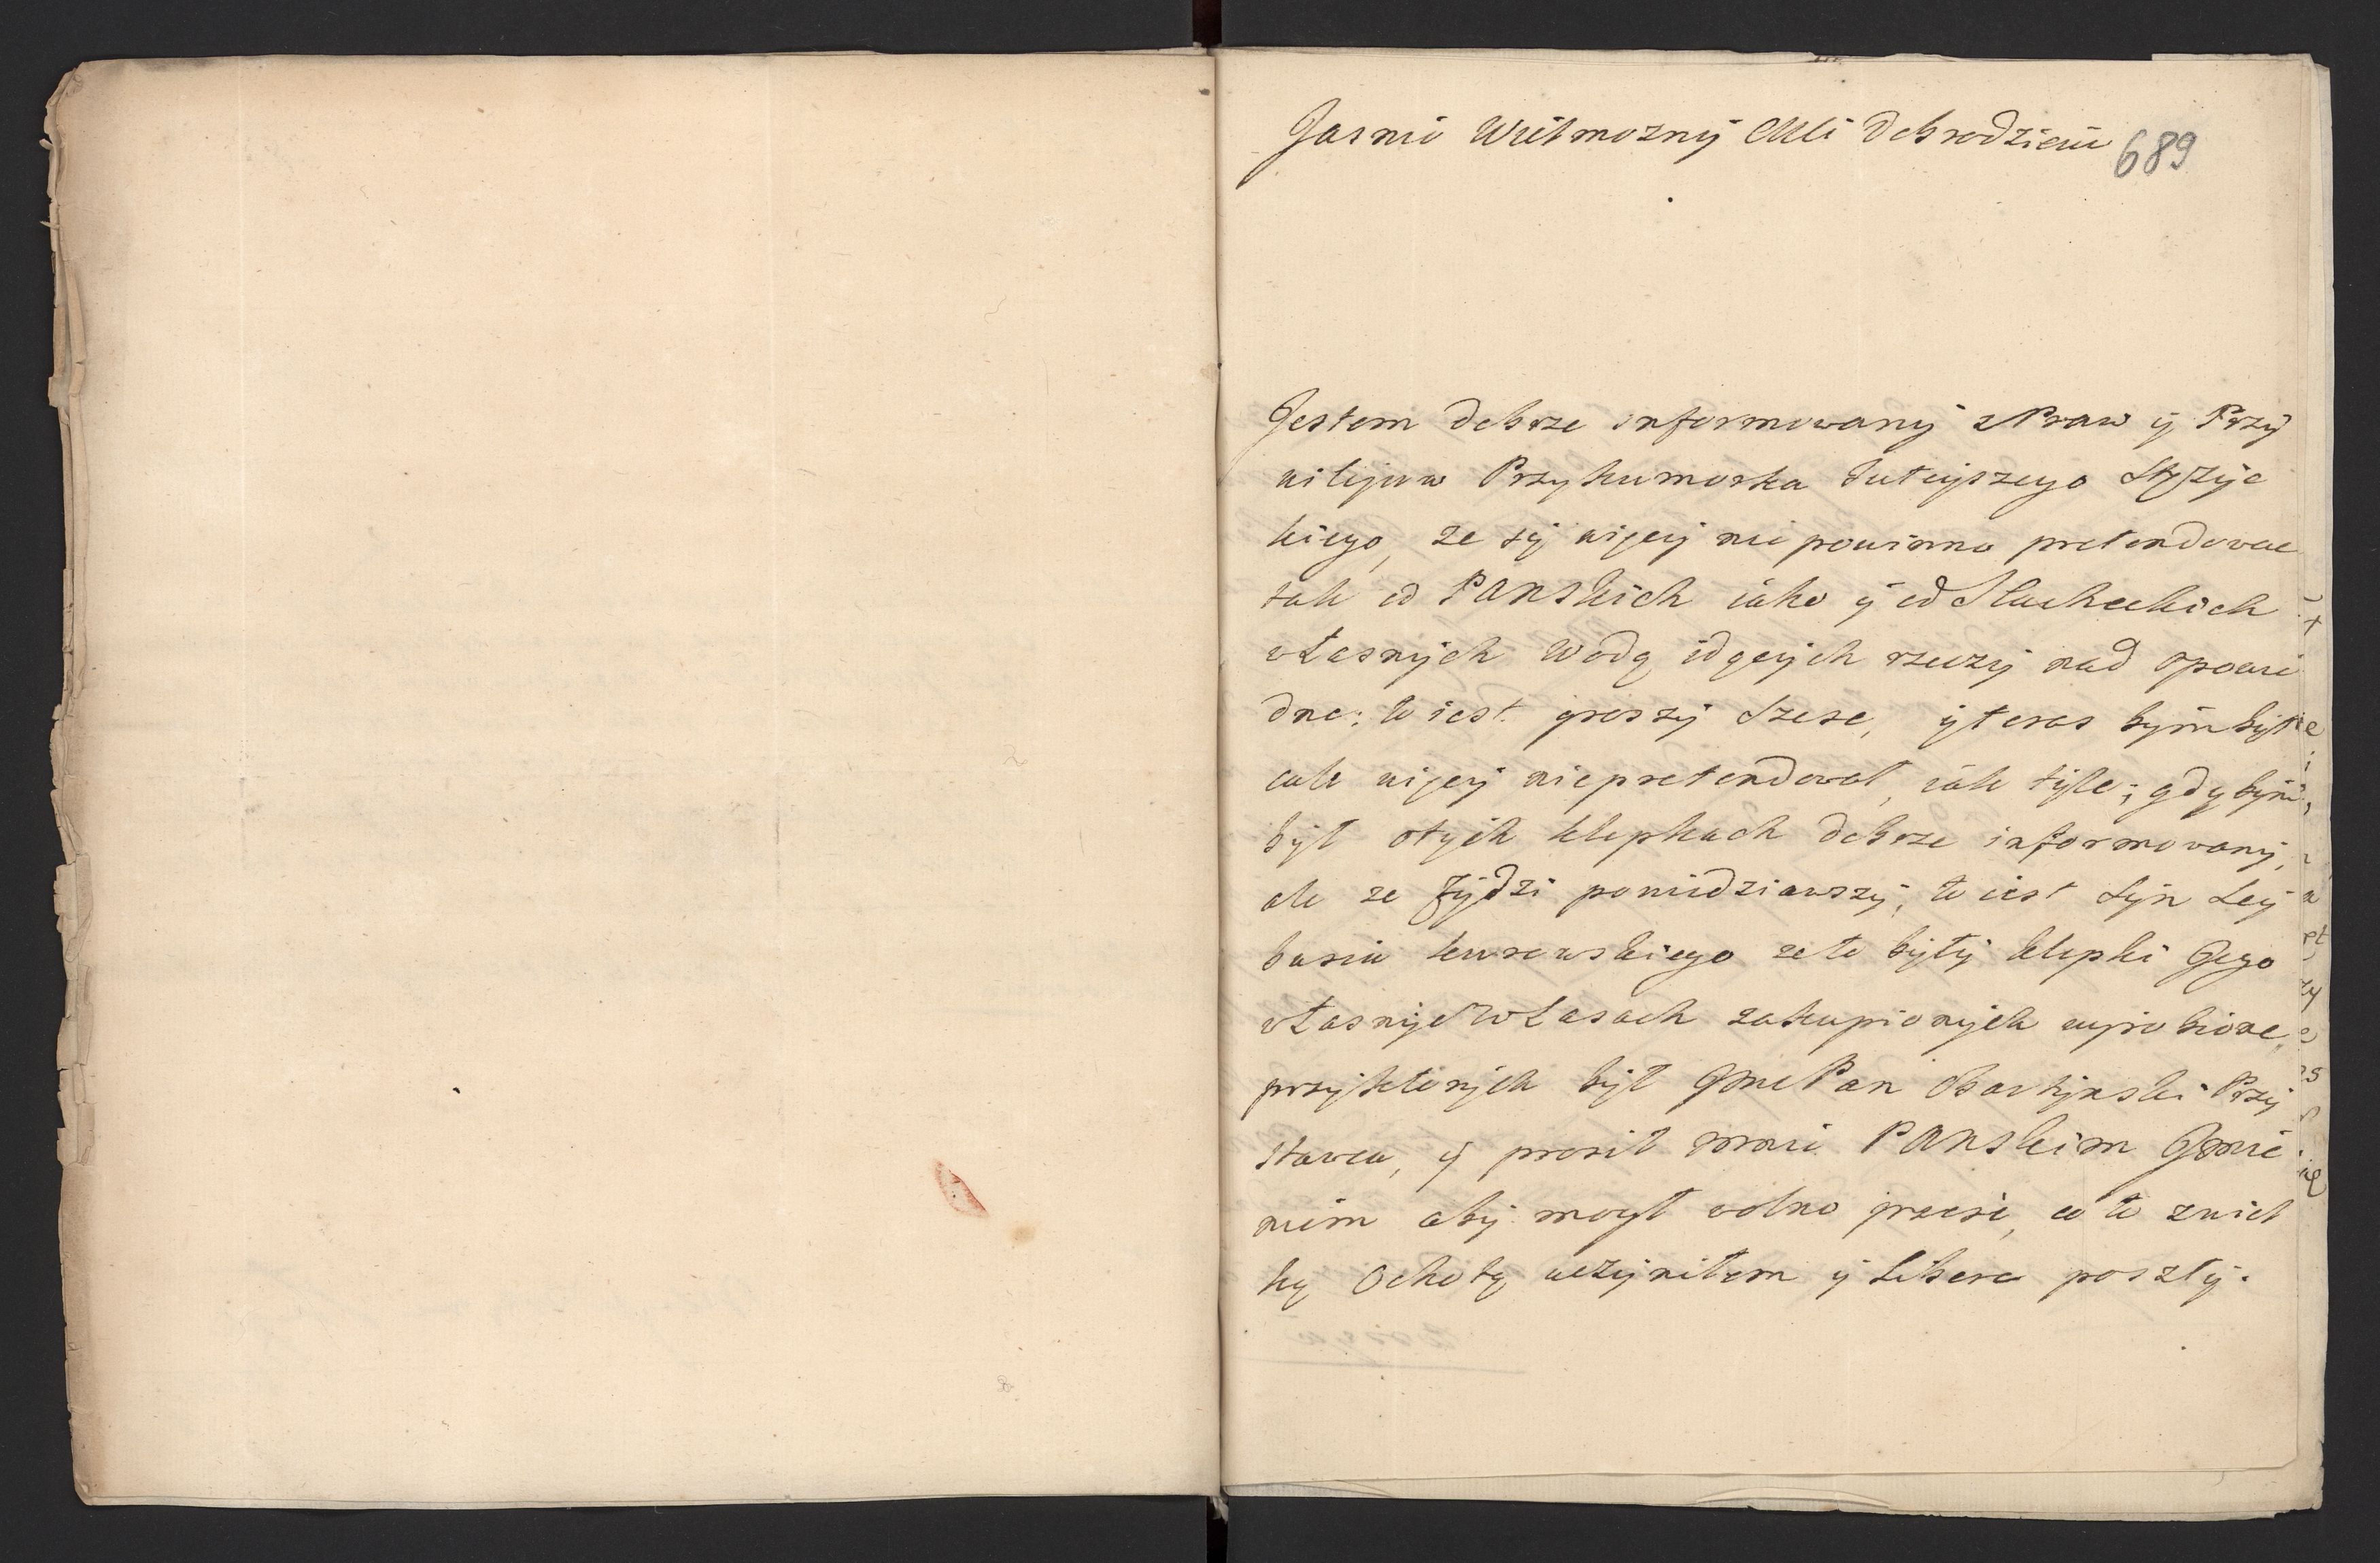 Jasnie Wielmozny Mci Dobrodzieiu
689
Jestem dobrze informowany z Praw y Przy
wilijow Przykumorka tutejszego
kiego, ze sy więcy nie powinno pretendowac
tak od PANSkich iako y od Slacheckich
własnych Wodą idących rzeczy nad opowie
dne: to iest groszy Szesc, y teras bym był
cale więcy niepretendował, iak tyle; gdybym
był otych klepkach dobrze informowany,
ale ze Zydzi powiedziawszy, to iest Syn Ley
busia kurowskiego ze to byly klepki Jego
własnye w Lasach zakupionych wyrobione
przyktorych był Jmc Pan Przy
stawca, y prosił mnie PANSkim Jmie
niem aby mogł wolno przesc, co to zwiel
ką Ochotą uczyniłem y Libera poszły.